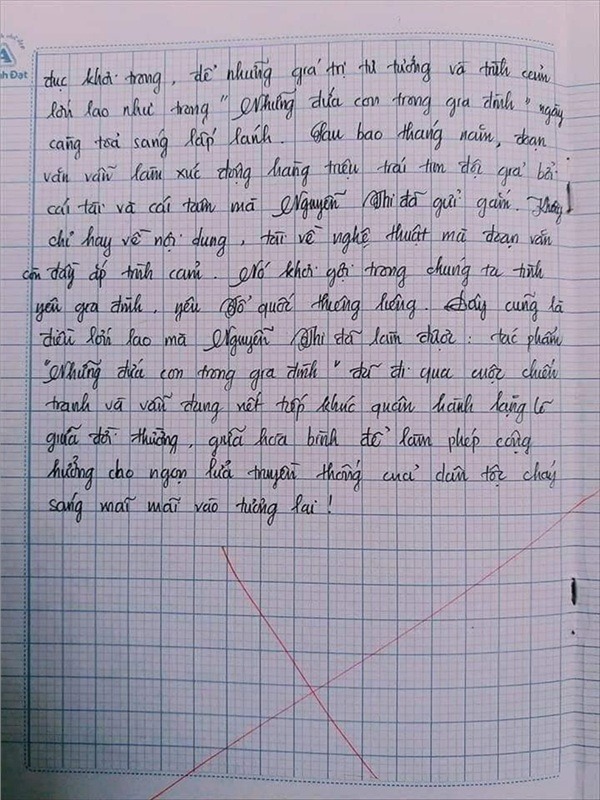 nh Đạt
đục khơi trong, để những giá trị tư tưởng và tình cảm
lớn lao như trong "Những đứa con trong gia đình" ngày
càng toả sáng lấp lánh. Sau bao tháng năm, đoạn
văn vẫn làm xúc động hàng triệu trái tim độc giả bởi
cái tài và cái tâm mà Nguyễn Thi đã gửi gắm. Không
chỉ hay về nội dung, tài về nghệ thuật mà đoạn văn
còn đầy ắp tình cảm. Nó khơi gợi trong chúng ta tình
yêu gia đình, yêu Tổ quốc thương luống. Đây cũng là
điều lớn lao mà Nguyễn Thi đã làm được: tác phẩm
"Những đứa con trong gia đình" đã đi qua cuộc chiến
tranh và vẫn đang viết tiếp khúc quân hành lặng lẽ
giữa đời thường, giữa hoà bình để làm phép cộng
hưởng cho ngọn lửa truyền thống của dân tộc cháy
sáng mãi mãi vào tương lai!